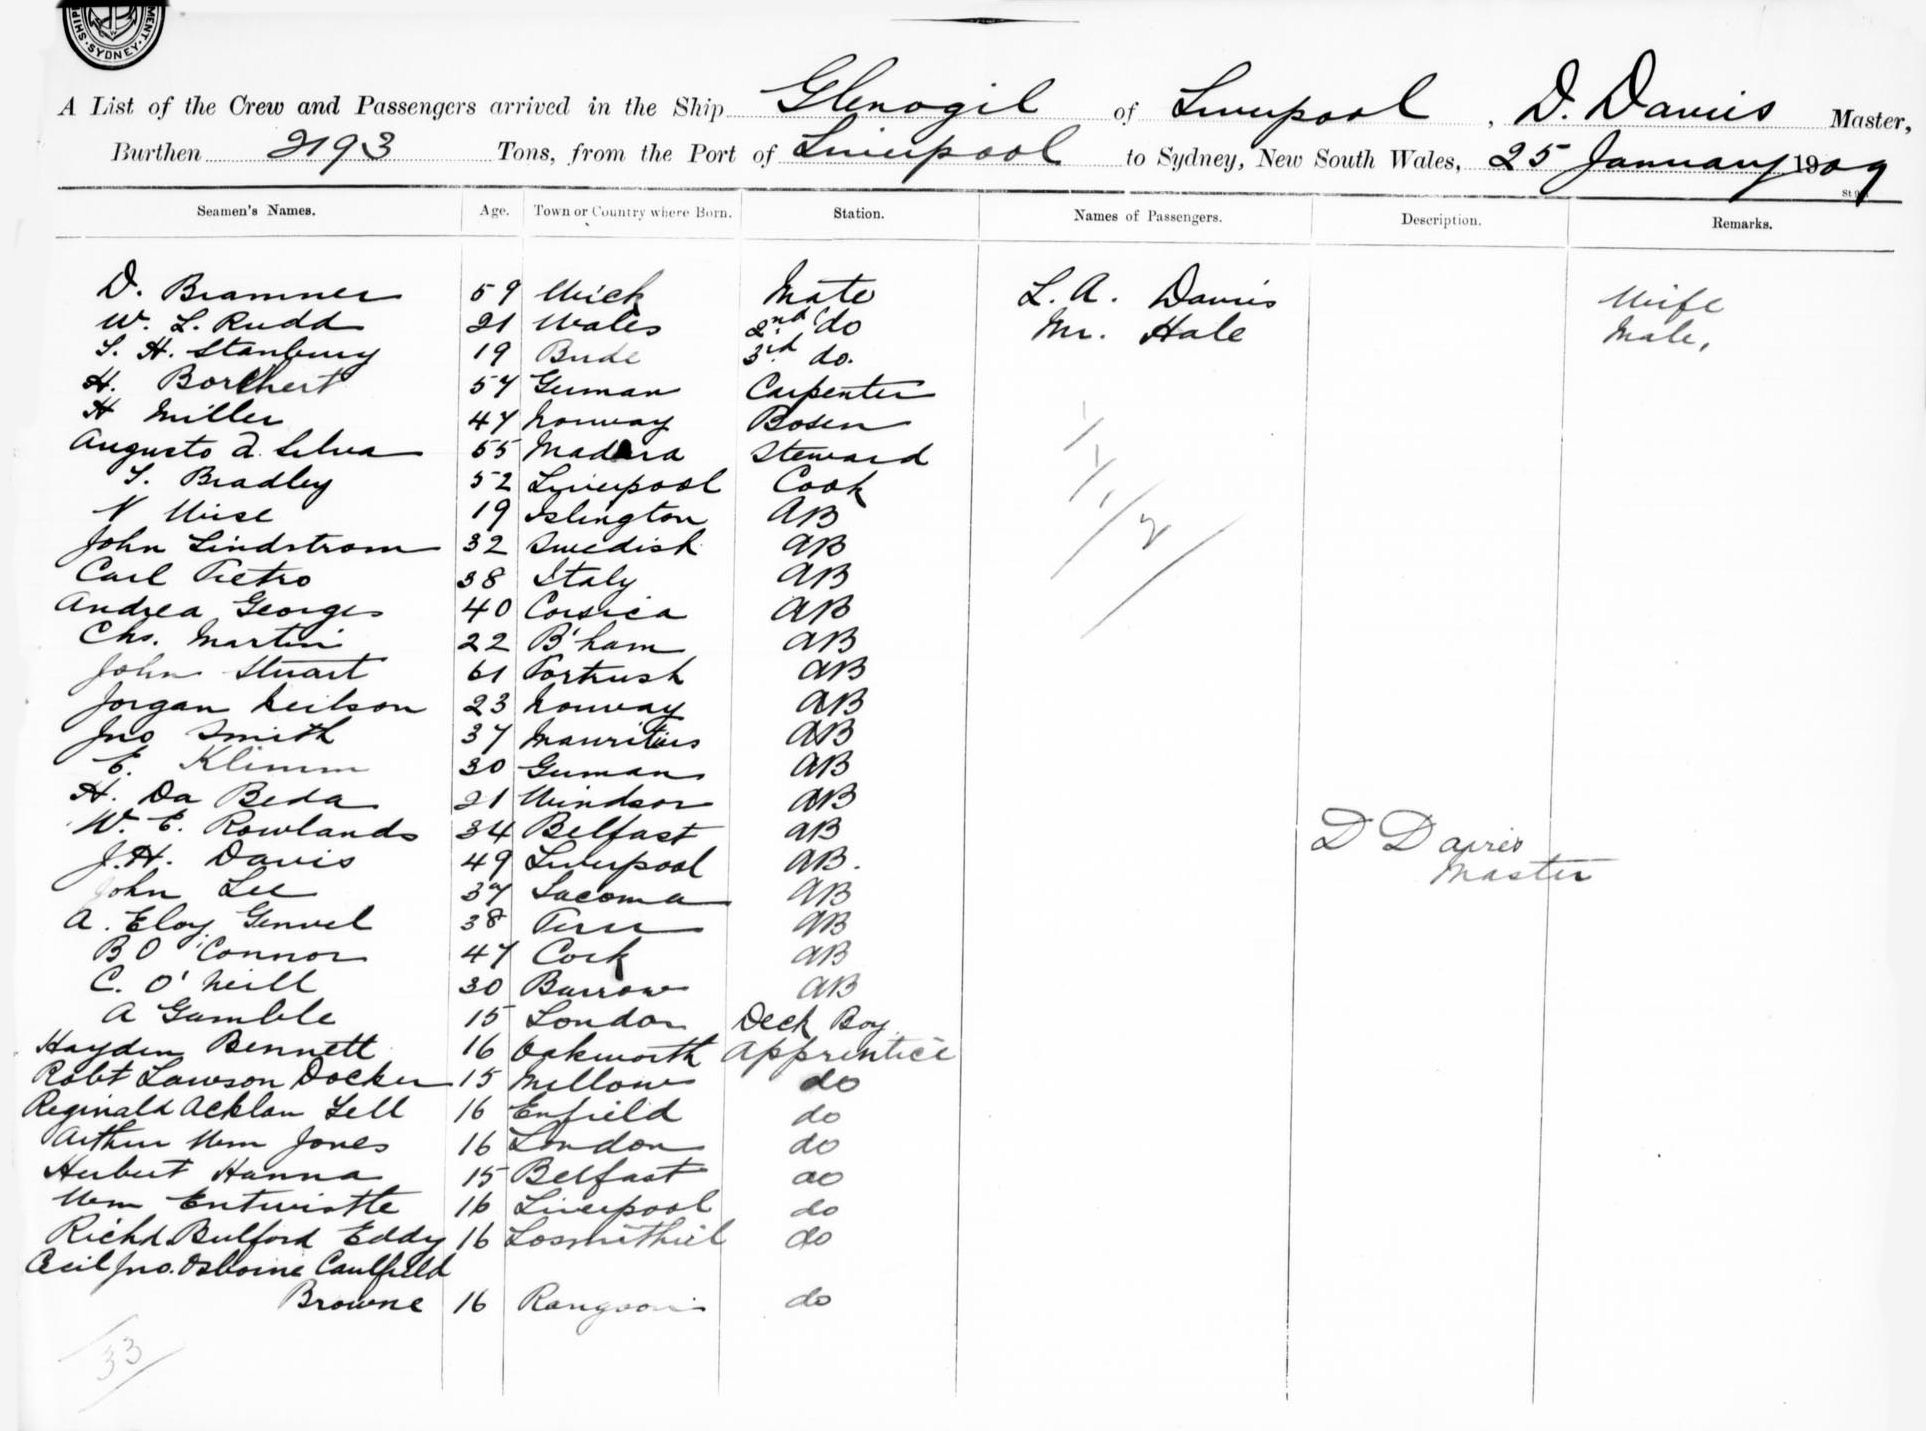 SHIPPING
SYDNEY
A List of the Crew and Passengers arrived in the Ship Glenogil of Liverpool, D. Davies Master,
Burthen 2193 Tons, from the Port of Liverpool to Sydney, New South Wales, 25 January 1909
Seamen's Names. Age. Town or Country where Born. Station. Names of Passengers. Description. Remarks.
D. Bramner 59 Wick Mate L. A. Davies Wife
W. L. Rudd 21 Wales 2nd do Mr. Hale Male,
S. H. Stanbury 19 Bude 3rd do.
H. Borchert 57 German Carpenter
H Miller 47 Norway Bosen
Augusto d. Silva 55 Madera Steward
T. Bradley 52 Liverpool Cook
N Wise 19 Islington AB
John Lindstrom 32 Swedish AB
Carl Pietro 38 Italy AB
Andrea Georges 40 Corsica AB
Chs. Martin 22 B'ham AB
John Stuart 61 Portrush AB
Jorgan Neilson 23 Norway AB
Jno Smith 37 Mauritius AB
E. Klimm 30 German AB
H. Da Beda 21 Windsor AB
W. E. Rowlands 34 Belfast AB
D Davies
J. H. Davis 49 Liverpool AB.
Master
John Lee 37 Tacoma AB
A. Eloy Genvel 38 Peru AB
B O'Connor 47 Cork AB
C. O'Neill 30 Barrow AB
A Gamble 15 London Deck Boy
Hayden Bennett 16 Oakworth Apprentice
Robt Lawson Docker 15 Mellow do
Reginald Acklan Tell 16 Enfield do
Arthur Wm Jones 16 London do
Herbert Hanna 15 Belfast do
Wm Entwistle 16 Liverpool do
Richd. Bulford Eddy 16 Losmithiel do
Cecil Jno. Osborne Caulfield
Browne 16 Rangoon do
33